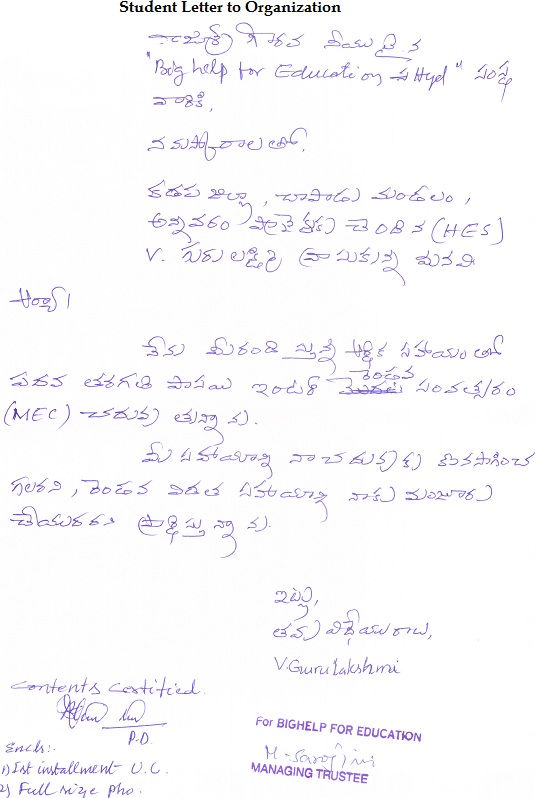 Student Letter to Organization
గౌరవ
"Big help for Education Hyd" సంస్థ
వారికి,
నమస్కారాలతో,
కడప జిల్లా, చాపాడు మండలం,
అన్నవరం చెందిన (HES)
V. గురు లక్ష్మి వ్రాసుకున్న మనవి
ఆర్యా!
నేను మీరంది స్తున్న ఆర్థిక సహాయం తో
పదవ తరగతి పాసయి ఇంటర్ రెండవ సంవత్సరం
(MEC) చదువు తున్నాను.
మీ సహాయాన్ని నా చదువుకు కొనసాగించ
గలరని, రెండవ విడత సహాయాన్ని నాకు మంజూరు
చేయగలరని ప్రార్థిస్తున్నాను.
ఇట్లు,
తమ విధేయురాలు,
V.Gurulakshmi
Contents Certified.
P.D.
For BIGHELP FOR EDUCATION
M. Sarojini
MANAGING TRUSTEE
Encls:-
1) Ist installment U.C.
2) Full size pho.